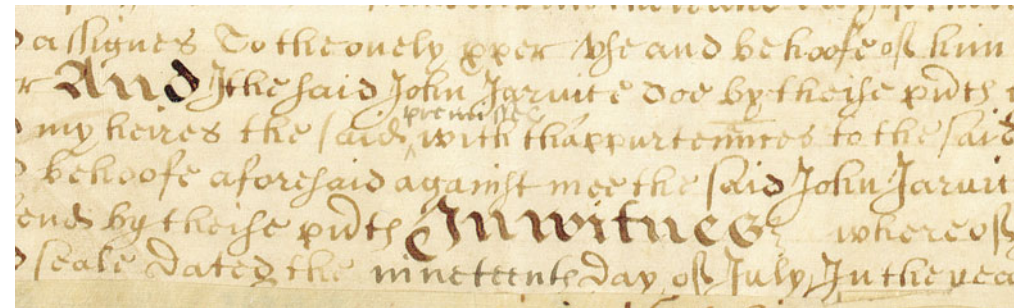 assignes To the onely pper vse and behoofe of him
And I the said John Jarvice doe by theise pñts
my heires the said premisses with thappurtennces to the said
behoofe aforesaid against mee the said John Jarvic
by theise pñts In witnes whereof
seale dated the nineteenth day of July In the yea